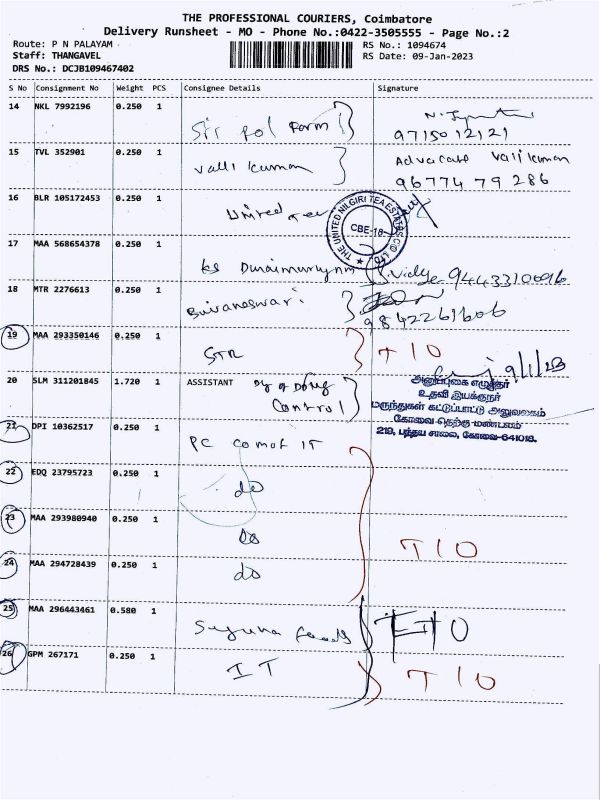 THE PROFESSIONAL COURIERS, Coimbatore
Delivery Runsheet - MO - Phone No.:0422-3505555 - Page No.:2
Route: P N PALAYAM
RS No.: 1094674
Staff: THANGAVEL
RS Date: 09-Jan-2023
DRS No.: DCJB109467402
S No Consignment No Weight PCS Consignee Details Signature
14 NKL 7992196 0.250 1
9715012121
15 TVL 352901 0.250 1 Valli kumar Advacate Vallikumar
9677479286
16 BLR 105172453 0.250 1 United Tea
THE UNITED NILGIRI TEA ESTATES CO. LTD.
CBE-18
17 MAA 568654378 0.250 1
9443310096
18 MTR 2276613 0.250 1 Buvaneswari
9842261606
19 MAA 293350146 0.250 1 STR T I O
9/1/23
20 SLM 311201845 1.720 1 ASSISTANT Control
அனுப்புகை எழுத்தர்
உதவி இயக்குநர்
மருந்துகள் கட்டுப்பாட்டு அலுவலகம்
கோவை தெற்கு மண்டலம்
219, பந்தய சாலை, கோவை-641018.
21 DPI 10362517 0.250 1 PC comot IT
22 EDQ 23795723 0.250 1 do
23 MAA 293980940 0.250 1 do T I O
24 MAA 294728439 0.250 1 do
25 MAA 296443461 0.580 1 Suguna foods
26 GPM 267171 0.250 1 IT T I O